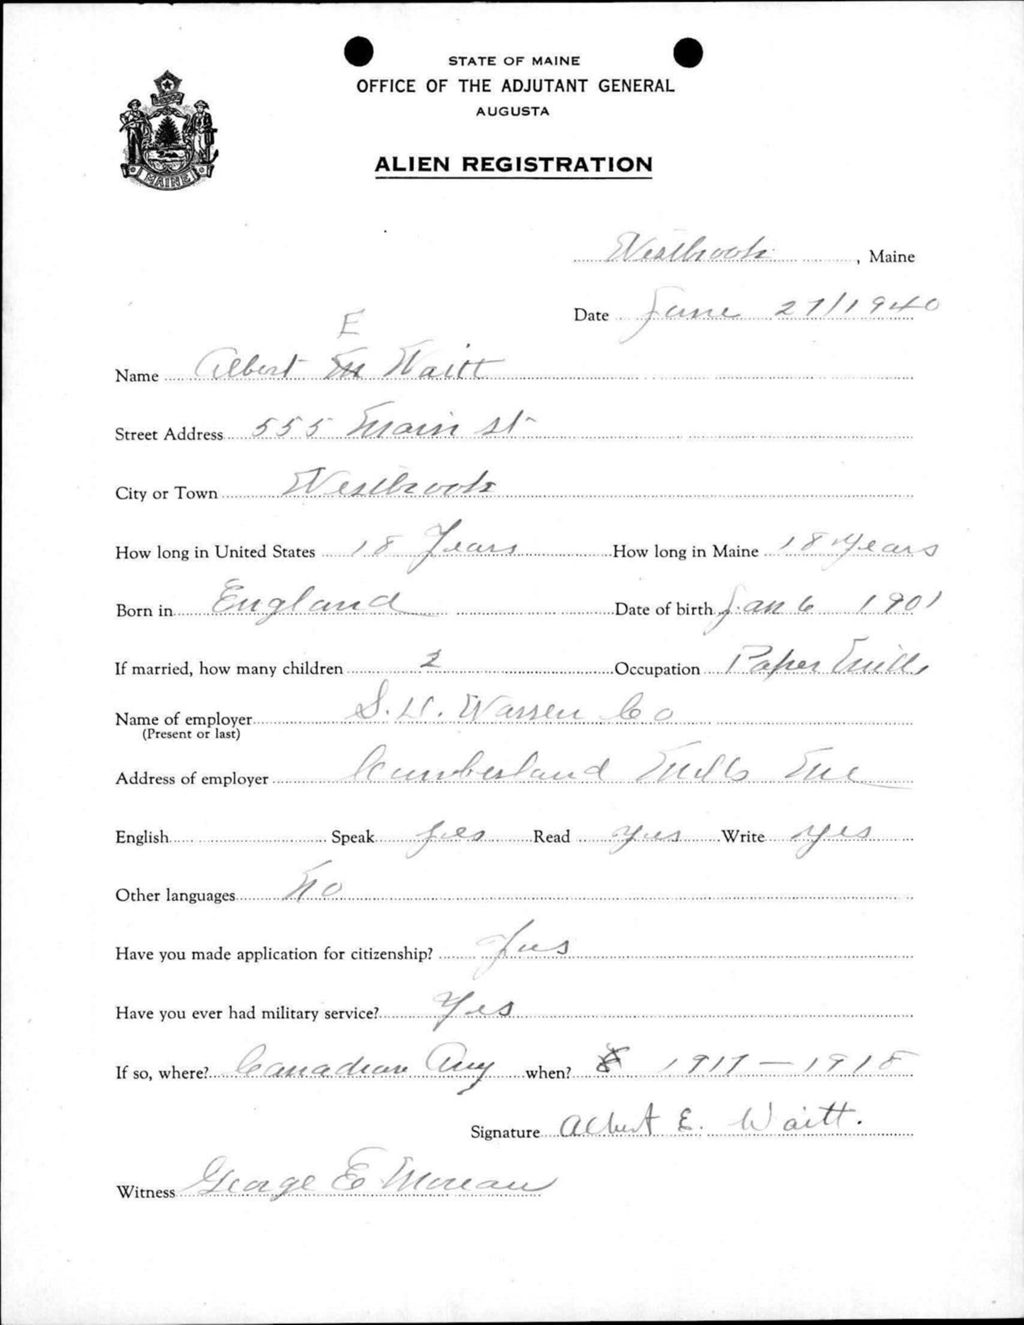 STATE OF MAINE
OFFICE OF THE ADJUTANT GENERAL
AUGUSTA
MAINE
ALIEN REGISTRATION
Westbrook, Maine
Date June 27/1940
E
Name Albert M Waitt
Street Address 555 Main St
City or Town Westbrook
How long in United States 18 Years How long in Maine 18 Years
Born in England Date of birth Jan 6 1901
If married, how many children 2 Occupation Paper Mill
Name of employer S. D. Warren Co
(Present or last)
Address of employer Cumberland Mills Me
English Speak yes Read yes Write yes
Other languages No
Have you made application for citizenship? Yes
Have you ever had military service? Yes
If so, where? Canadian Amy when? 1917 - 1918
Signature Albert E. Waitt.
Witness George E Moreau